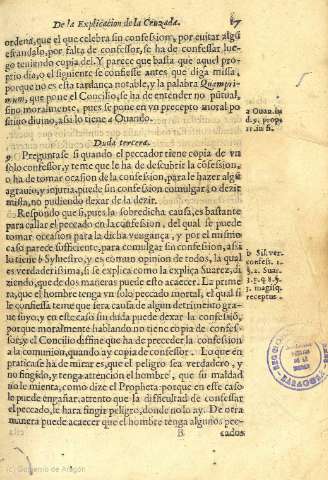 De la Explicacion de la Cruzada. 87
ordena, que el que celebra sin confession, por euitar algũ
escandalo, por falta de confessor, se ha de confessar, lue-
go teniendo copia del. Y parece que basta que aquel pro-
prio dia, o el siguiente se confiesse antes que diga missa,
porque no es esta tardança notable, y la palabra Quampri-
mum, que pone el Concilio, se ha de entender no phisica,
sino moralmente, pues se pone en vn precepto moral po-
sitiuo diuino, assi lo tiene a Ouando.
Duda tercera.
9 Preguntase si quando el peccador tiene copia de vn
solo confessor, y teme que le ha de descubrir la cõfession,
o ha de tomar ocasion de la confession, para le hazer algũ
agrauio, y injuria, puede sin confession comulgar: o dezir
missa, no pudiendo dexar de la dezir.
Respondo que si, pues la sobredicha causa, es bastante
para callar el peccado en la confession, del qual se puede
tomar ocasion para la dicha vengança, y por el mismo
caso parece sufficiente, para comulgar sin confession, assi
lo tiene b Syluestro, y es comun opinion de todos, la qual
es verdaderissima, si se explica como la explica Suarez, di-
ziendo, que de dos maneras puede esto acaecer. La prime
ra es, que el hombre tenga vn solo peccado mortal, el qual si
le confiessa teme que sera causa de algun detrimento gra-
ue suyo, y en este caso sin duda puede dexar la confessiõ,
porque moralmente hablando no tiene copia de confes-
sor, y el Concilio diffine que ha de preceder la confession
a la comunion, quando ay copia de confessor. Lo que en
pratica se ha de mirar es, que el peligro sea verdadero, y
no fingido, y tenga attencion el hombre, que su maldad
no le mienta, como dize el Propheta: porque en este caso
lo puede engañar, attento que la difficultad de confessar
el peccado, le hara fingir peligro, donde no lo ay. De otra
manera puede acaecer que el hombre tenga algunos pec-
cados
a Ouan. in
b Sil. ver.
confess. 1.
q. 2. Suar.
receptus.
(c) Gobierno de Aragón